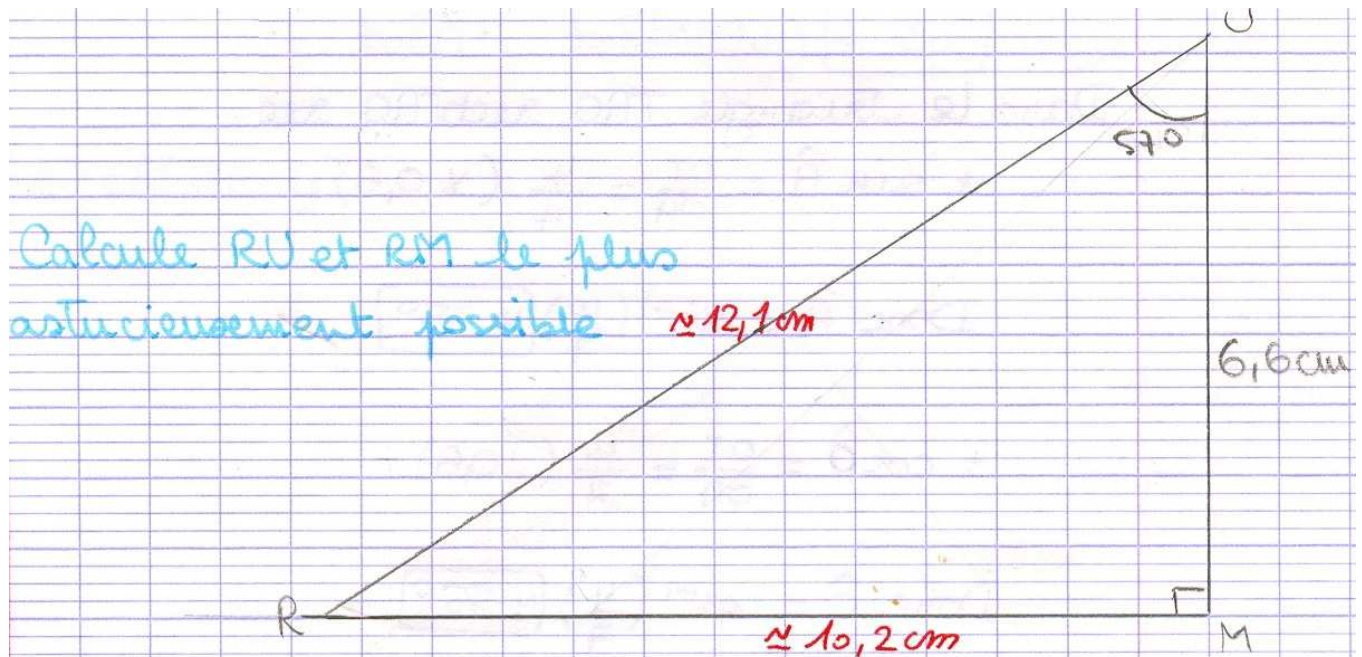 U
570
Calcule RU et RM le plus
astucieusement possible
≃ 12,1 cm
6,6 cm
R
≃ 10,2 cm
M